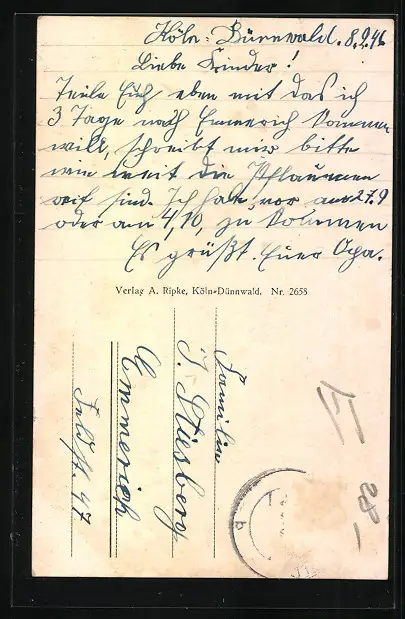 Köln-Dünnwald. 8.9.46
Liebe Kinder!
Teile Euch eben mit das ich
3 Tage nach Emmerich kommen
will, schreibt mir bitte
wie weit die Pflaumen
reif sind. Ich habe vor am 27.9
oder am 4,10, zu kommen
Es grüßt Euer Opa.
Verlag A. Ripke, Köln-Dünnwald. Nr. 2658
Familie
J. Stiesberg
Emmerich
Feldst. 47
28-